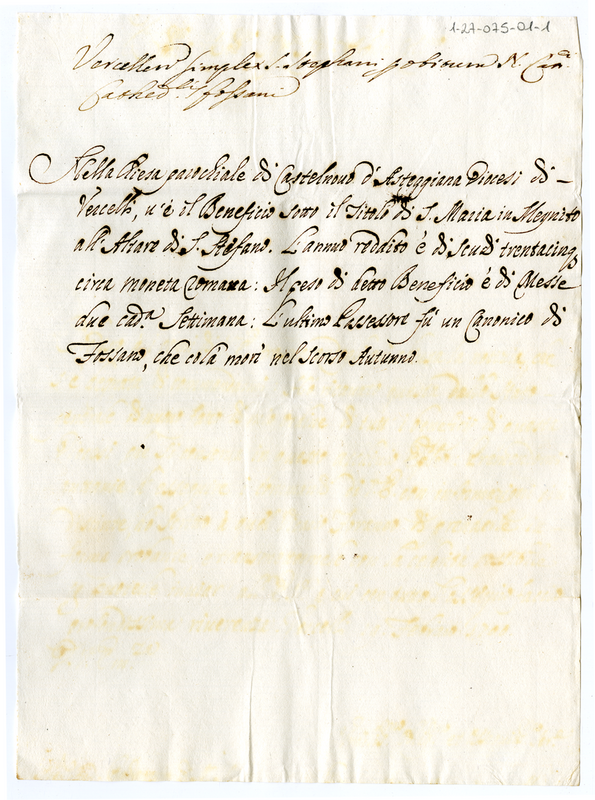 1-27-075-01-1
Vercellen simplex S. Stephani p obitum N. Can.
Cathed.lis Fossani
Nella Chiesa parochiale di Castelnovo d'Asteggiana Diocesi di
Vercelli, v'è il Beneficio sotto il Titolo di S. Maria in
all'Altare di S. Stefano. L'annuo reddito è di Scudi trentacinq
circa moneta Romana: Il peso di detto Beneficio è di Messe
due cad.a Settimana: L'ultimo Possessore fù un Canonico di
Fossano, che colà morì nel Scorso Autunno.